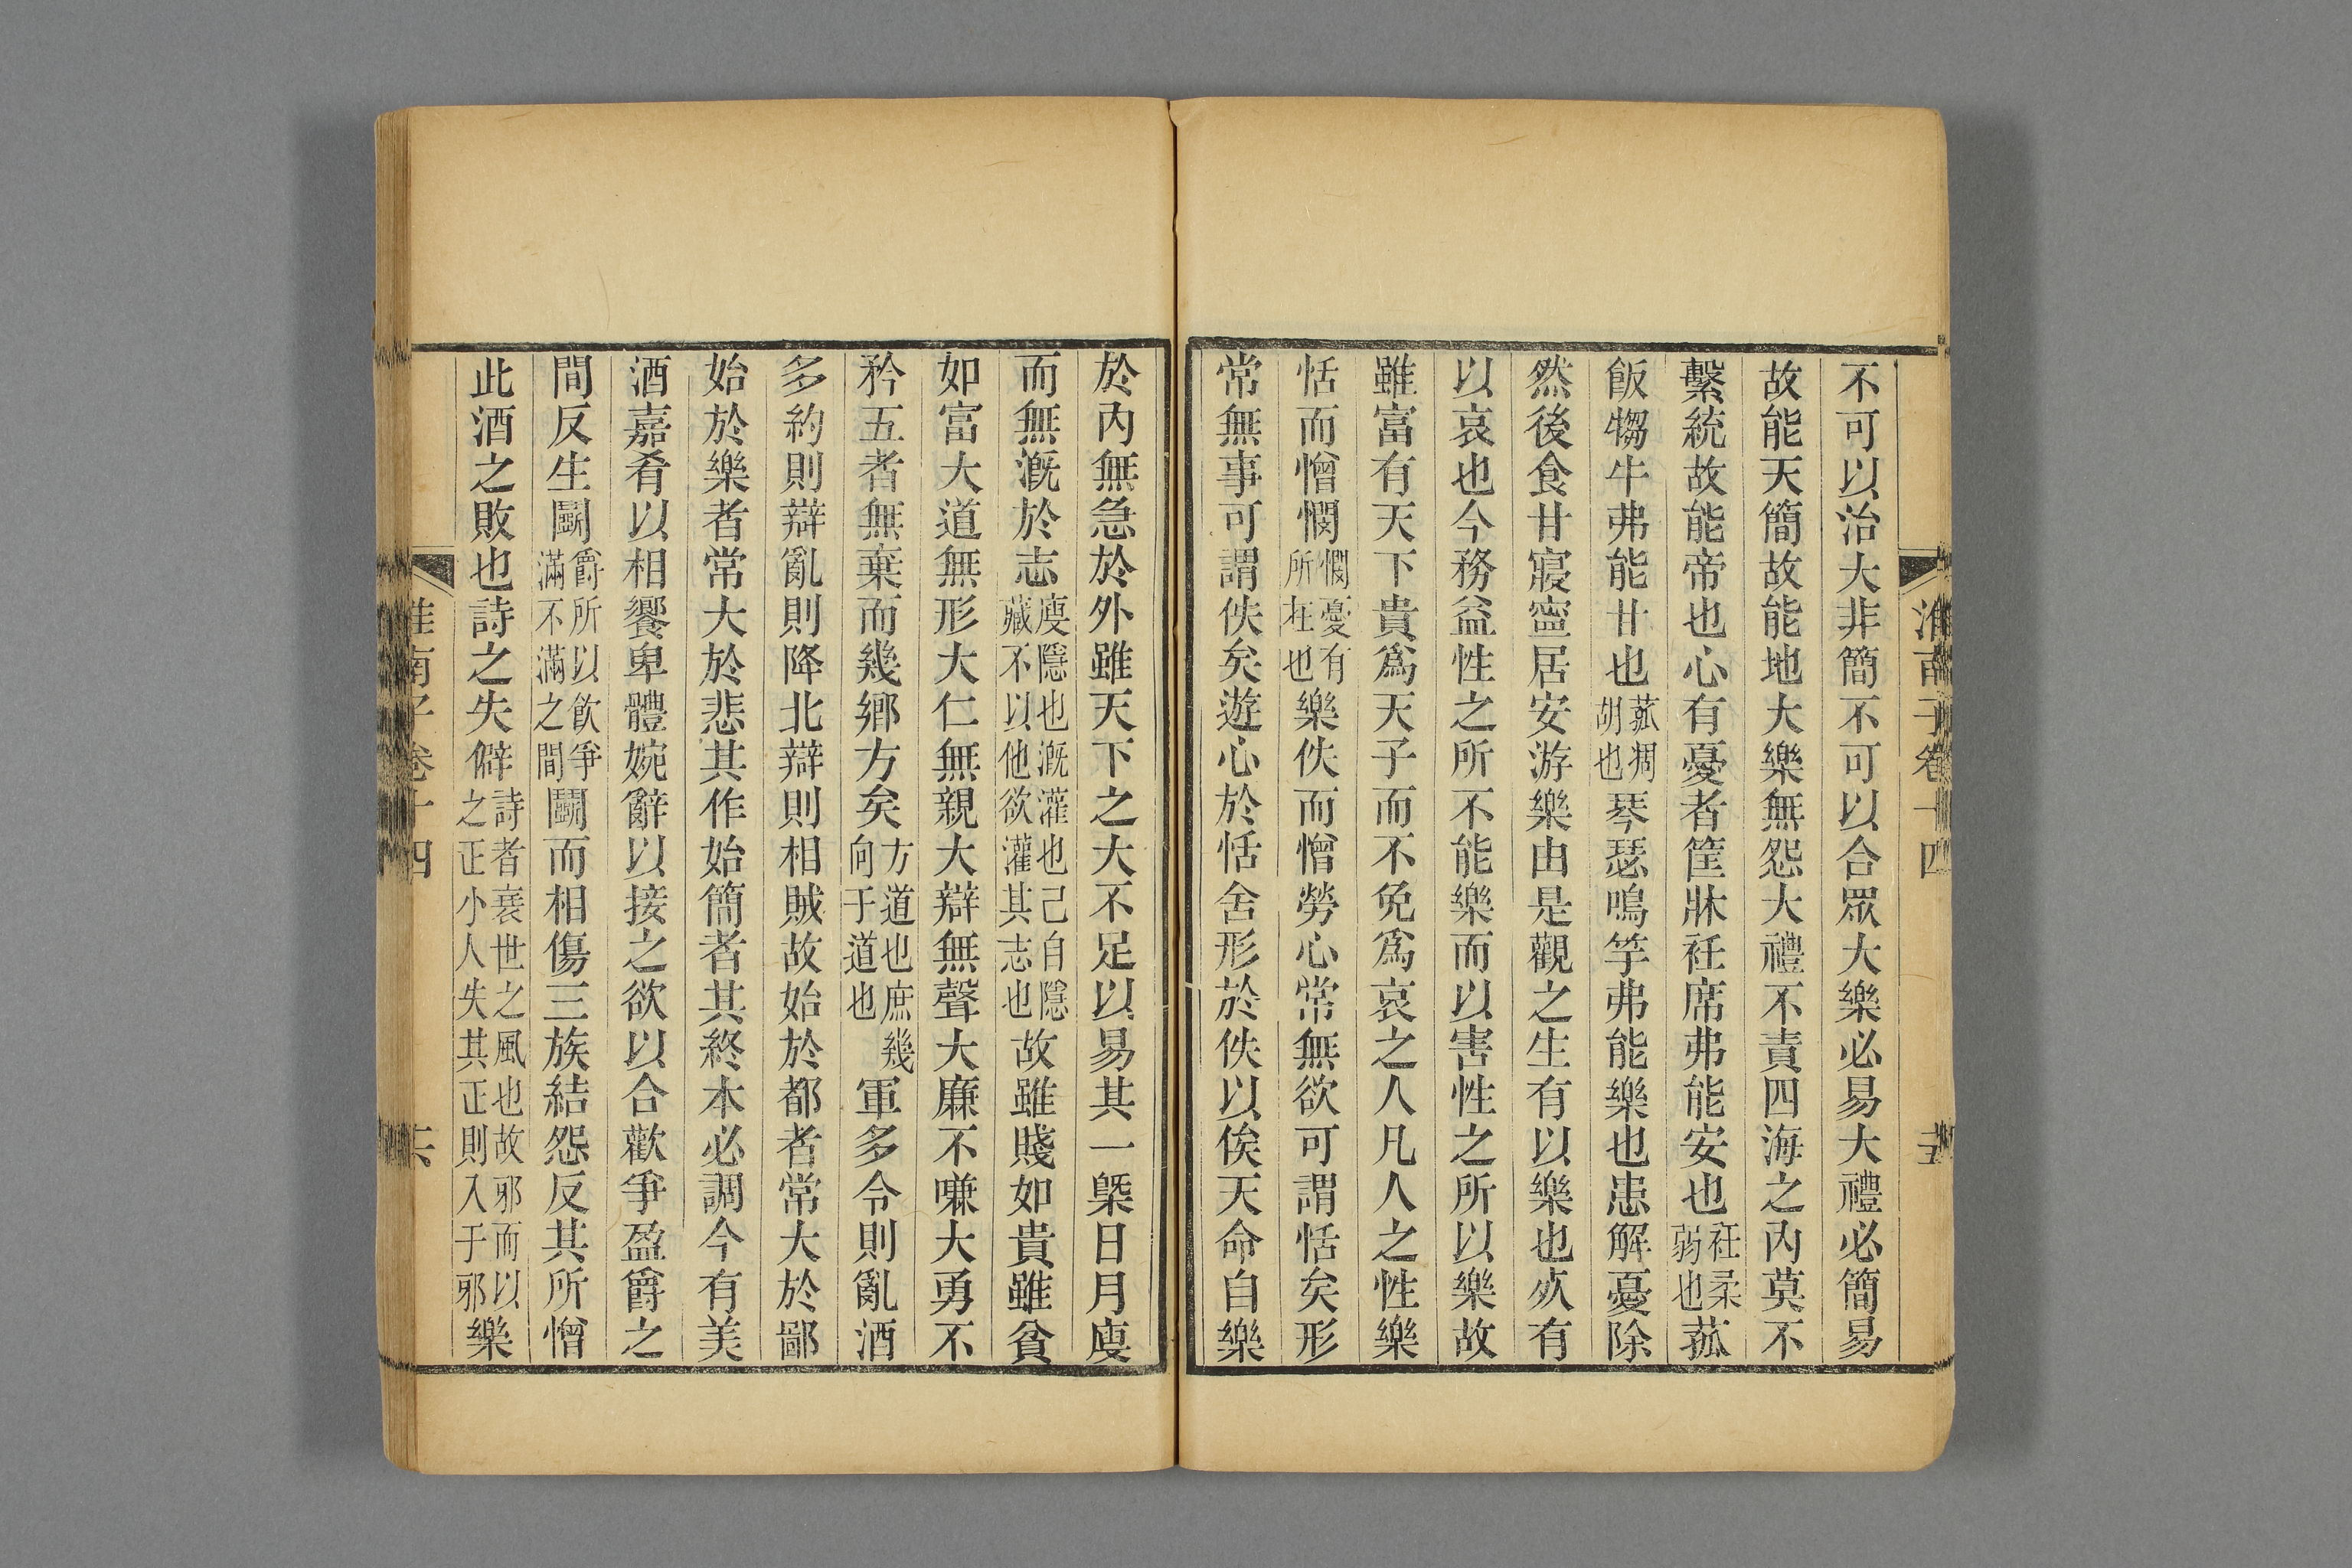 淮南子卷十四 十五
不可以治大非簡不可以合眾大樂必易大禮必簡易
故能天簡故能地大樂無怨大禮不責四海之內莫不
繫統故能帝也心有憂者筐牀衽席弗能安也衽柔弱也菰
飯犓牛弗能甘也菰犓胡也琴瑟鳴竽弗能樂也患解憂除
然後食甘寢寧居安游樂由是觀之生有以樂也死有
以哀也今務益性之所不能樂而以害性之所以樂故
雖富有天下貴為天子而不免為哀之人凡人之性樂
恬而憎憫憫憂有所在也樂佚而憎勞心常無欲可謂恬矣形
常無事可謂佚矣遊心於恬舍形於佚以俟天命自樂
於內無急於外雖天下之大不足以易其一㮣日月廋
而無溉於志廋隱也溉灌也己自隱藏不以他欲灌其志也故雖賤如貴雖貧
如富大道無形大仁無親大辯無聲大廉不嗛大勇不
矜五者無棄而幾鄉方矣方道也庶幾向于道也軍多令則亂酒
多約則辯亂則降北辯則相賊故始於都者常大於鄙
始於樂者常大於悲其作始簡者其終本必調今有美
酒嘉肴以相饗卑體婉辭以接之欲以合歡爭盈爵之
間反生鬭爵所以飲爭滿不滿之間鬭而相傷三族結怨反其所憎
此酒之敗也詩之失僻詩者衰世之風也故邪而以之正小人失其正則入于邪樂
淮南子卷十四 十六